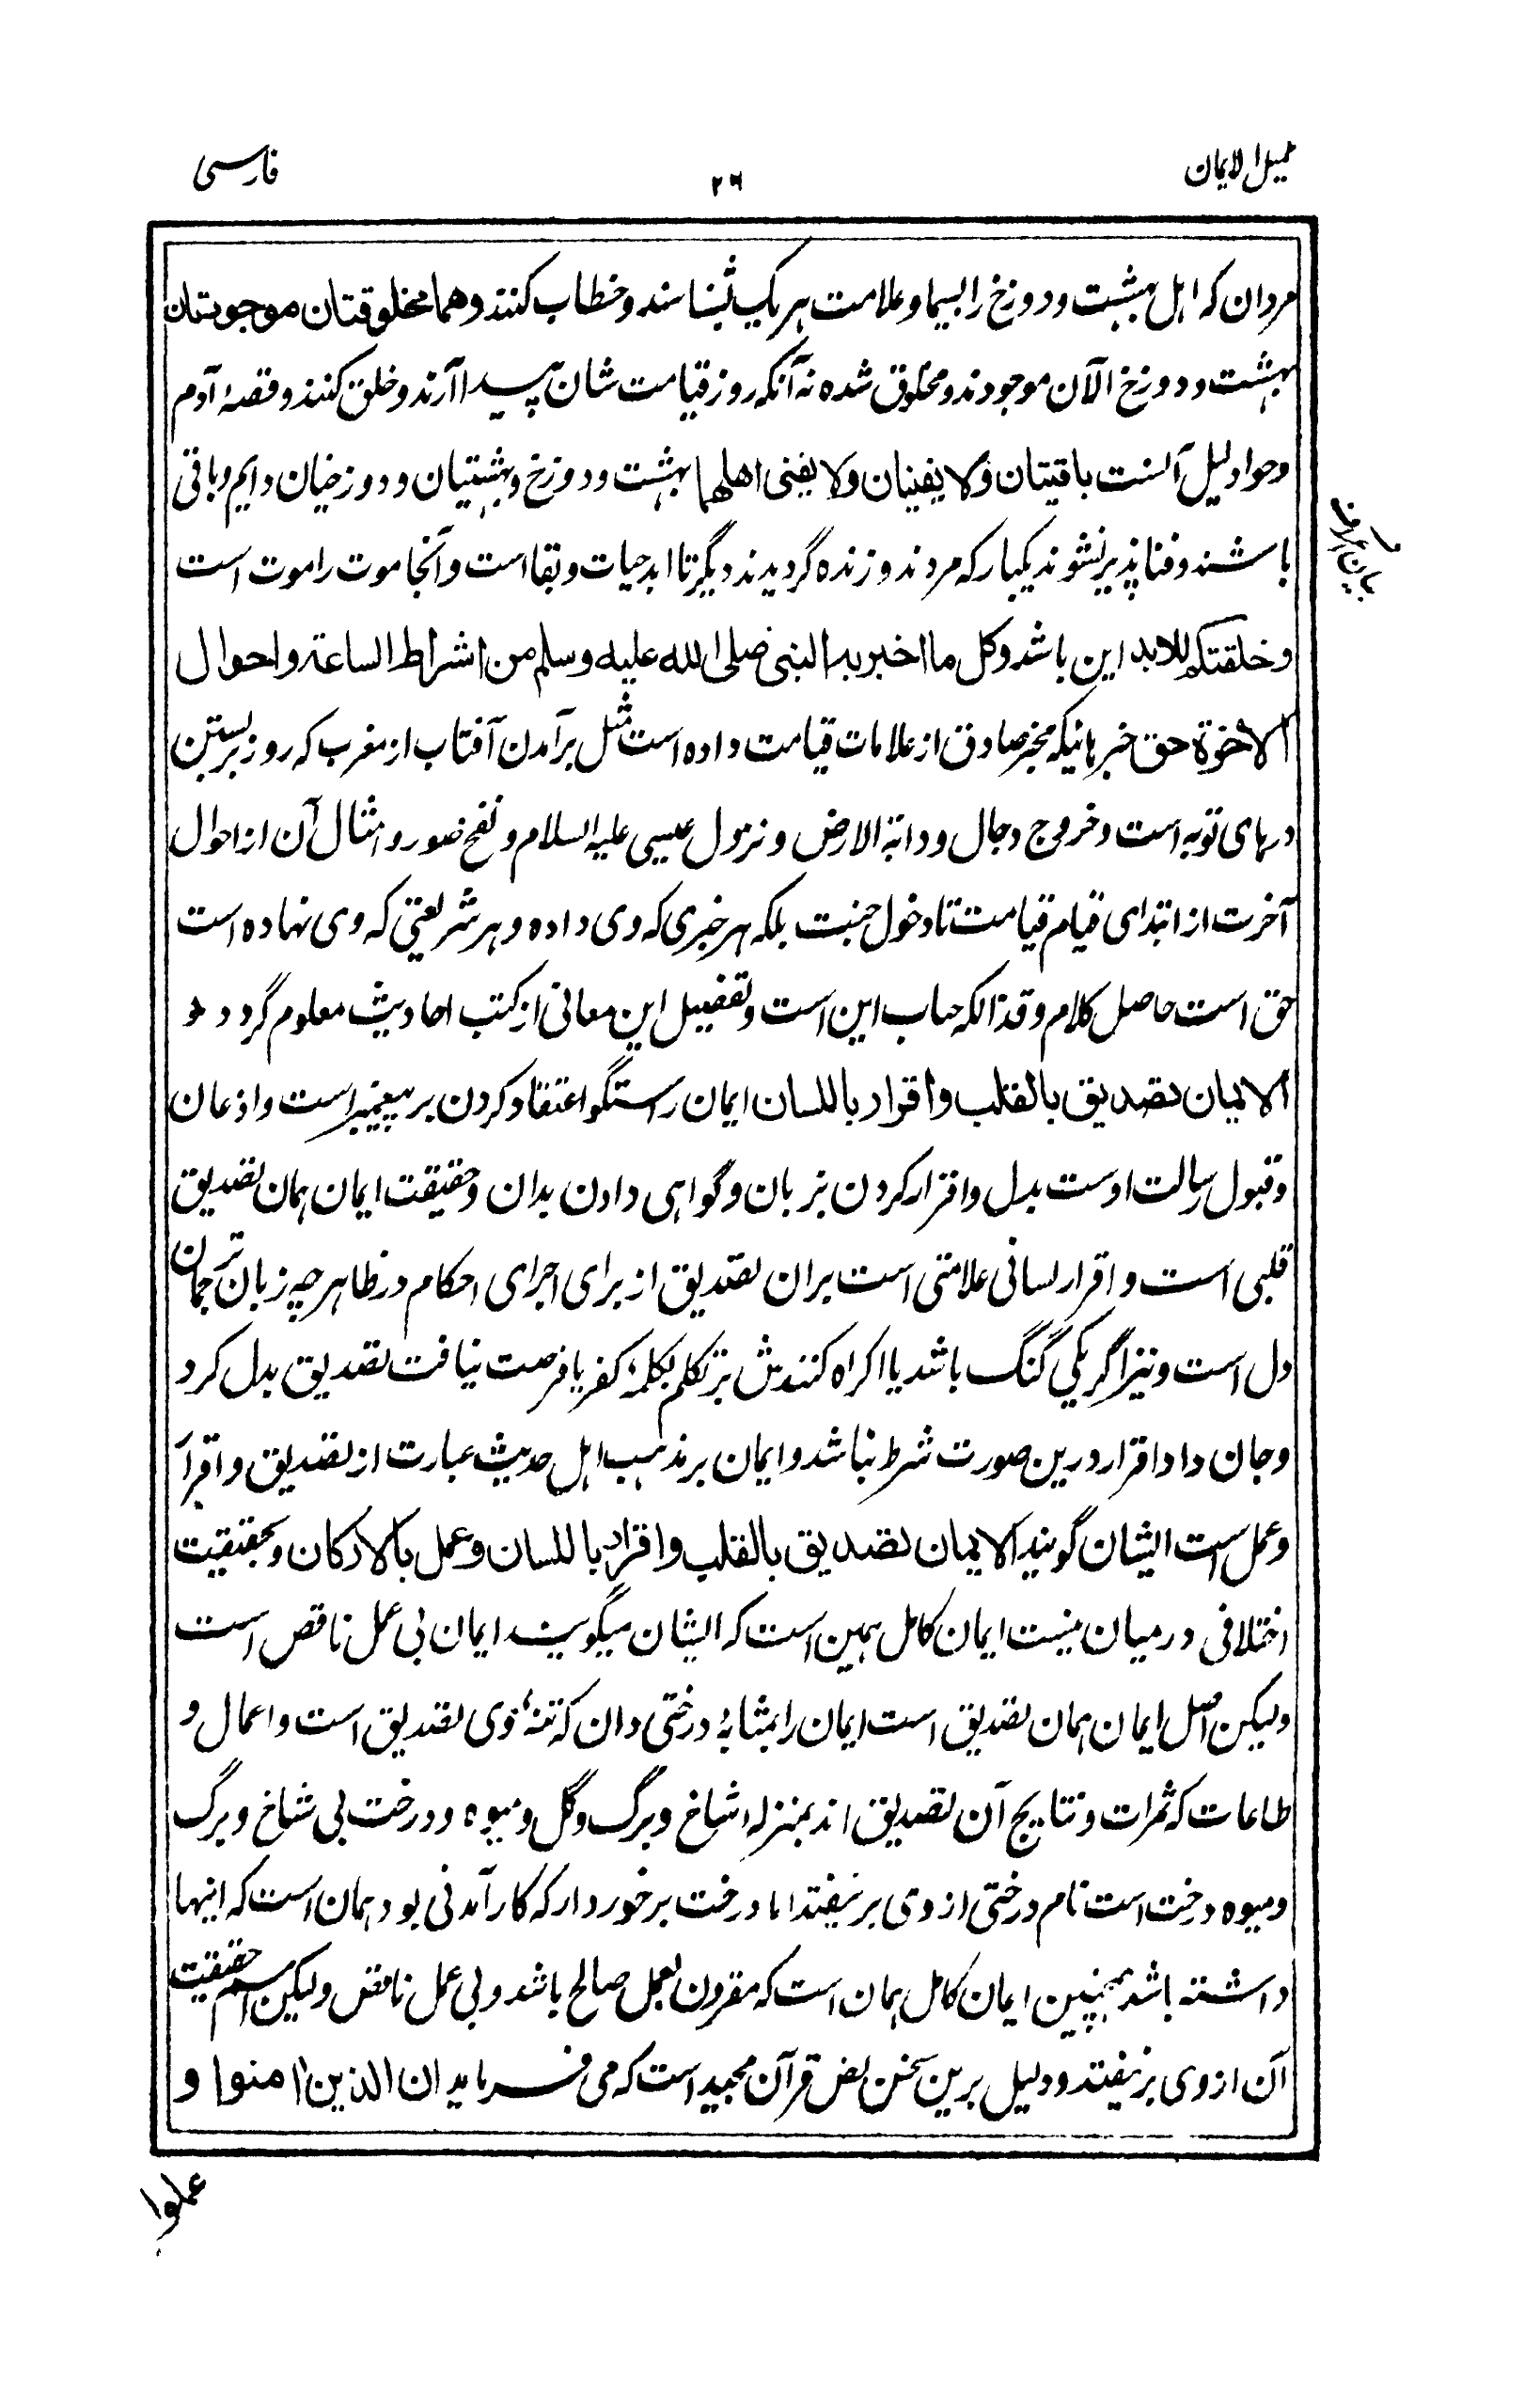 تکمیل الایمان
۲۶
فارسی
مردان که اهل بهشت و دوزخ را بسیما و علامت هر یک بشناسند و خطاب کنند وهما مخلوقتان موجودتان
بهشت و دوزخ الآن موجودند و مخلوق شده نه آنکه روز قیامت شان پیدا آرند و خلق کنند و قصهٔ آدم
و حوا دلیل آنست باقیتان ولا یفنیان ولا یفنی اهلهما بهشت و دوزخ و بهشتیان و دوزخیان دایم و باقی
باشند و فنا پذیر نشوند یکبار که مردند و زنده گردیدند دیگر تا ابد حیات و بقا است و آنجا موت را موت است
و خلقتکم للابد این باشد وکل ما اخبر به النبی صلی الله علیه وسلم من اشراط الساعة و احوال
الاخرة حق خبرهائیکه مخبر صادق از علامات قیامت داده است مثل برآمدن آفتاب از مغرب که روز بربستن
درهای توبه است و خروج دجال و دابة الارض و نزول عیسی علیه السلام و نفخ صور و امثال آن از احوال
آخرت از ابتدای قیام قیامت تا دخول جنت بلکه هر خبری که وی داده و هر شریعتی که وی نهاده است
حق است حاصل کلام و فذالکه حساب این است و تفصیل این معانی از کتب احادیث معلوم گردد
الایمان تصدیق بالقلب واقرار باللسان ایمان راستگو اعتقاد کردن بر پیغمبر است و اذعان
و قبول رسالت اوست بدل و اقرار کردن بزبان و گواهی دادن بدان و حقیقت ایمان همان تصدیق
قلبی است و اقرار لسانی علامتی است بران تصدیق از برای اجرای احکام در ظاهر چه زبان ترجمان
دل است و نیز اگر یکی گنگ باشد یا اکراه کنندش بر تکلم بکلمهٔ کفر یا فرصت نیافت تصدیق بدل کرد
و جان داد اقرار درین صورت شرط نباشد و ایمان بر مذهب اهل حدیث عبارت از تصدیق و اقرار
و عمل است ایشان گویند الایمان تصدیق بالقلب واقرار باللسان وعمل بالارکان و بحقیقت
اختلافی درمیان نیست ایمان کامل همین است که ایشان میگویند ایمان بی عمل ناقص است
ولیکن اصل ایمان همان تصدیق است ایمان را بمثابهٔ درختی دان که تنهٔ وی تصدیق است و اعمال و
طاعات که ثمرات و نتایج آن تصدیق اند بمنزله شاخ و برگ و گل و میوه و درخت بی شاخ و برگ
و میوه درخت است نام درختی از وی بر نیفتد اما درخت برخوردار که کارآمدنی بود همان است که اینها
داشته باشد همچنین ایمان کامل همان است که مقرون بعمل صالح باشد و بی عمل ناقص ولیکن اسم حقیقت
آن از وی بر نیفتد و دلیل برین سخن نص قرآن مجید است که می فرماید ان الذین امنوا و
عملوا